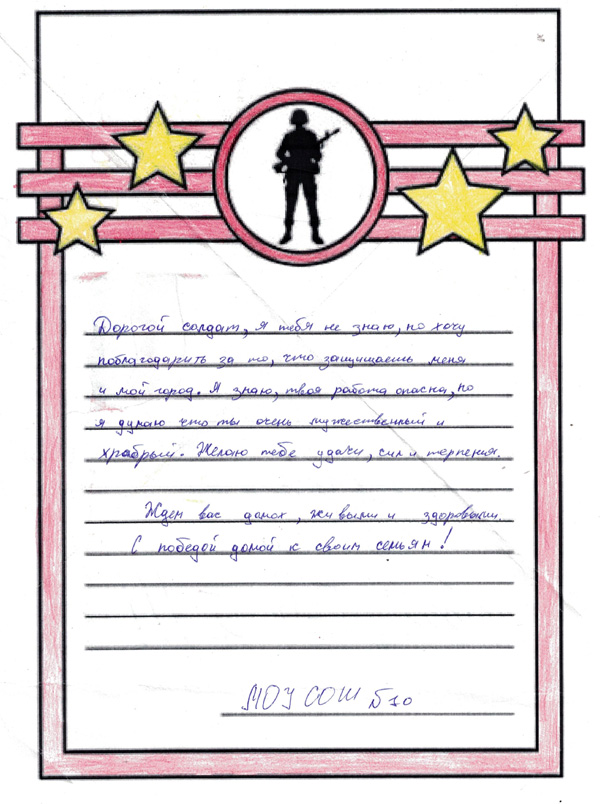 Дорогой солдат, я тебя не знаю, но хочу
поблагодарить за то, что защищаешь меня
и мой город. Я знаю, твоя работа опасна, но
я думаю что ты очень мужественный и
храбрый. Желаю тебе удачи, сил и терпения.
Ждем вас домой, живыми и здоровыми.
С победой домой к своим семьям!
МОУ СОШ №10